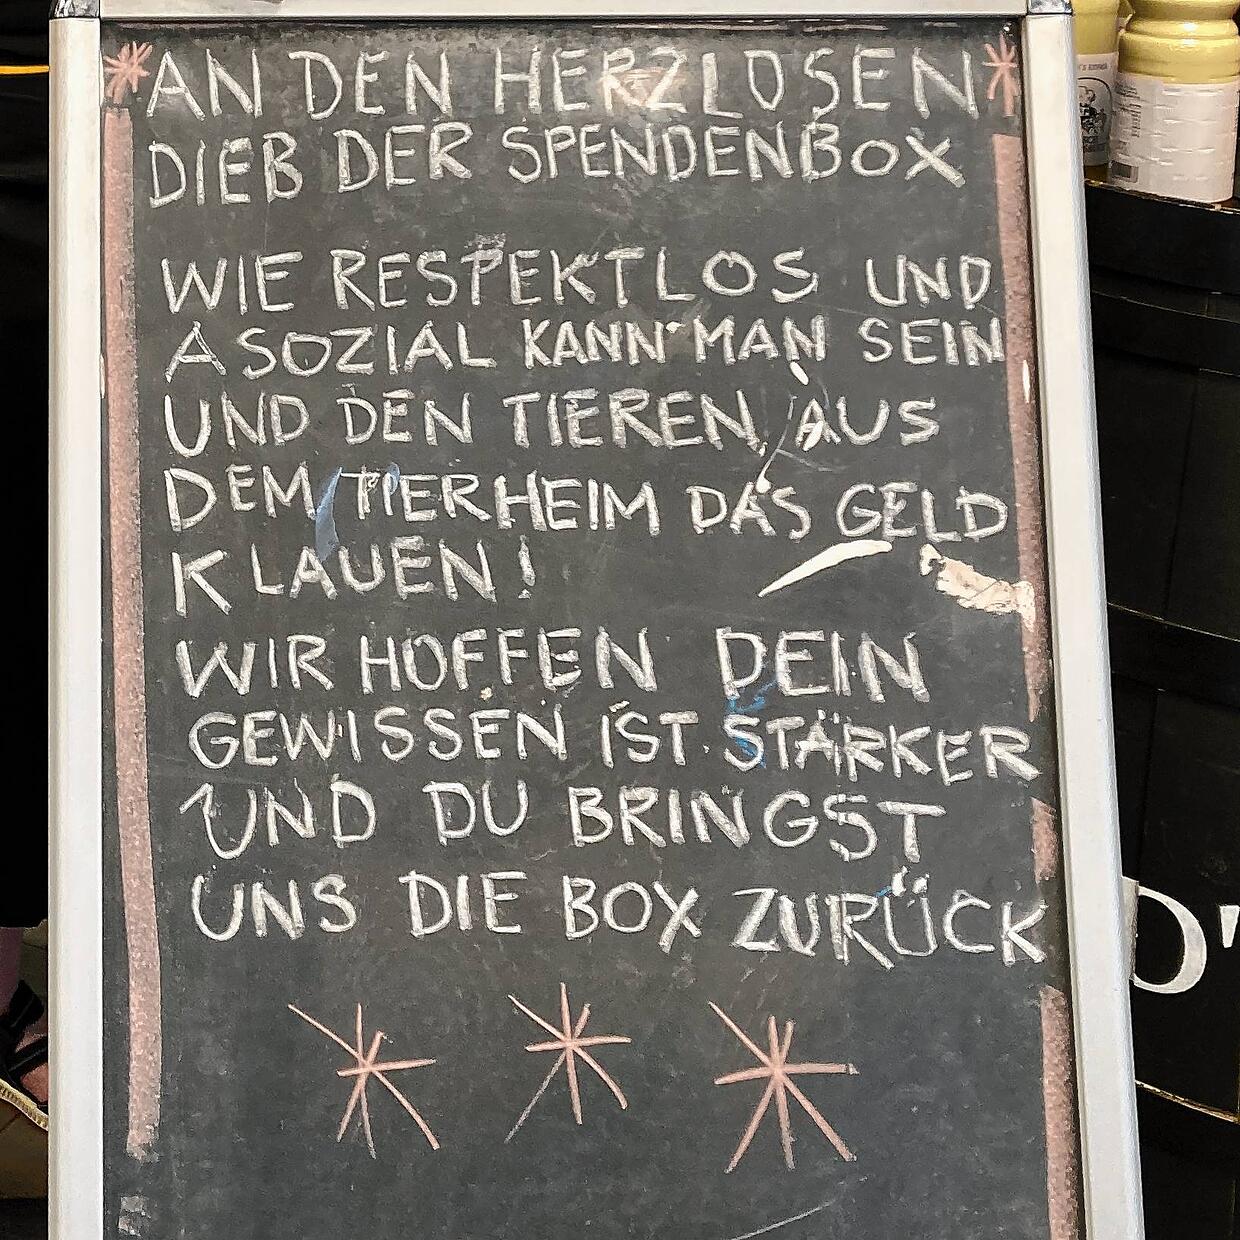 AN DEN HERZLOSEN
DIEB DER SPENDENBOX
WIE RESPEKTLOS UND
ASOZIAL KANN MAN SEIN
UND DEN TIEREN AUS
DEM TIERHEIM DAS GELD
KLAUEN!
WIR HOFFEN DEIN
GEWISSEN IST STÄRKER
UND DU BRINGST
UNS DIE BOX ZURÜCK